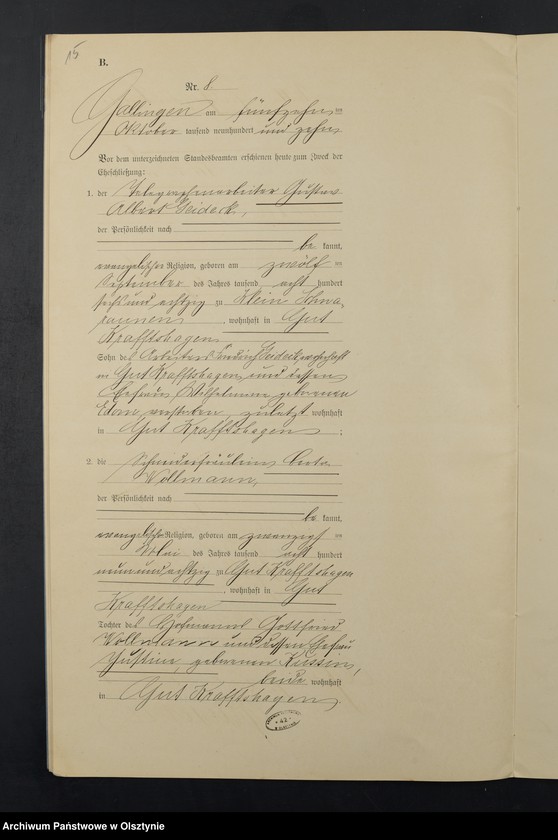 15
B.
Nr. 8.
Gallingen am fünfzehnten
Oktober tausend neunhundert und zehn
Vor dem unterzeichneten Standesbeamten erschienen heute zum Zweck der
Eheschließung:
1. der Telegraphenarbeiter Gustav
Albert
der Persönlichkeit nach
be kannt,
evangelischer Religion, geboren am zwölften
September des Jahres tausend acht hundert
sechsundachtzig zu Klein
, wohnhaft in Gut
Krafftshagen
Sohn des wohnhaft
in Gut Krafftshagen und dessen
Ehefrau Wilhelmine geborenen
verstorben, zuletzt wohnhaft
in Gut Krafftshagen ;
2. die Schneiderfräulein
Wollmann,
der Persönlichkeit nach
be kannt,
evangelischer Religion, geboren am zwanzigsten
Mai des Jahres tausend acht hundert
neunundachtzig zu Gut Krafftshagen
, wohnhaft in Gut
Krafftshagen
Tochter des Hofmanns Gottfried
Wollmann und dessen Ehefrau
Justine, geborenen
beide wohnhaft
in Gut Krafftshagen.
42
Archiwum Państwowe w Olsztynie